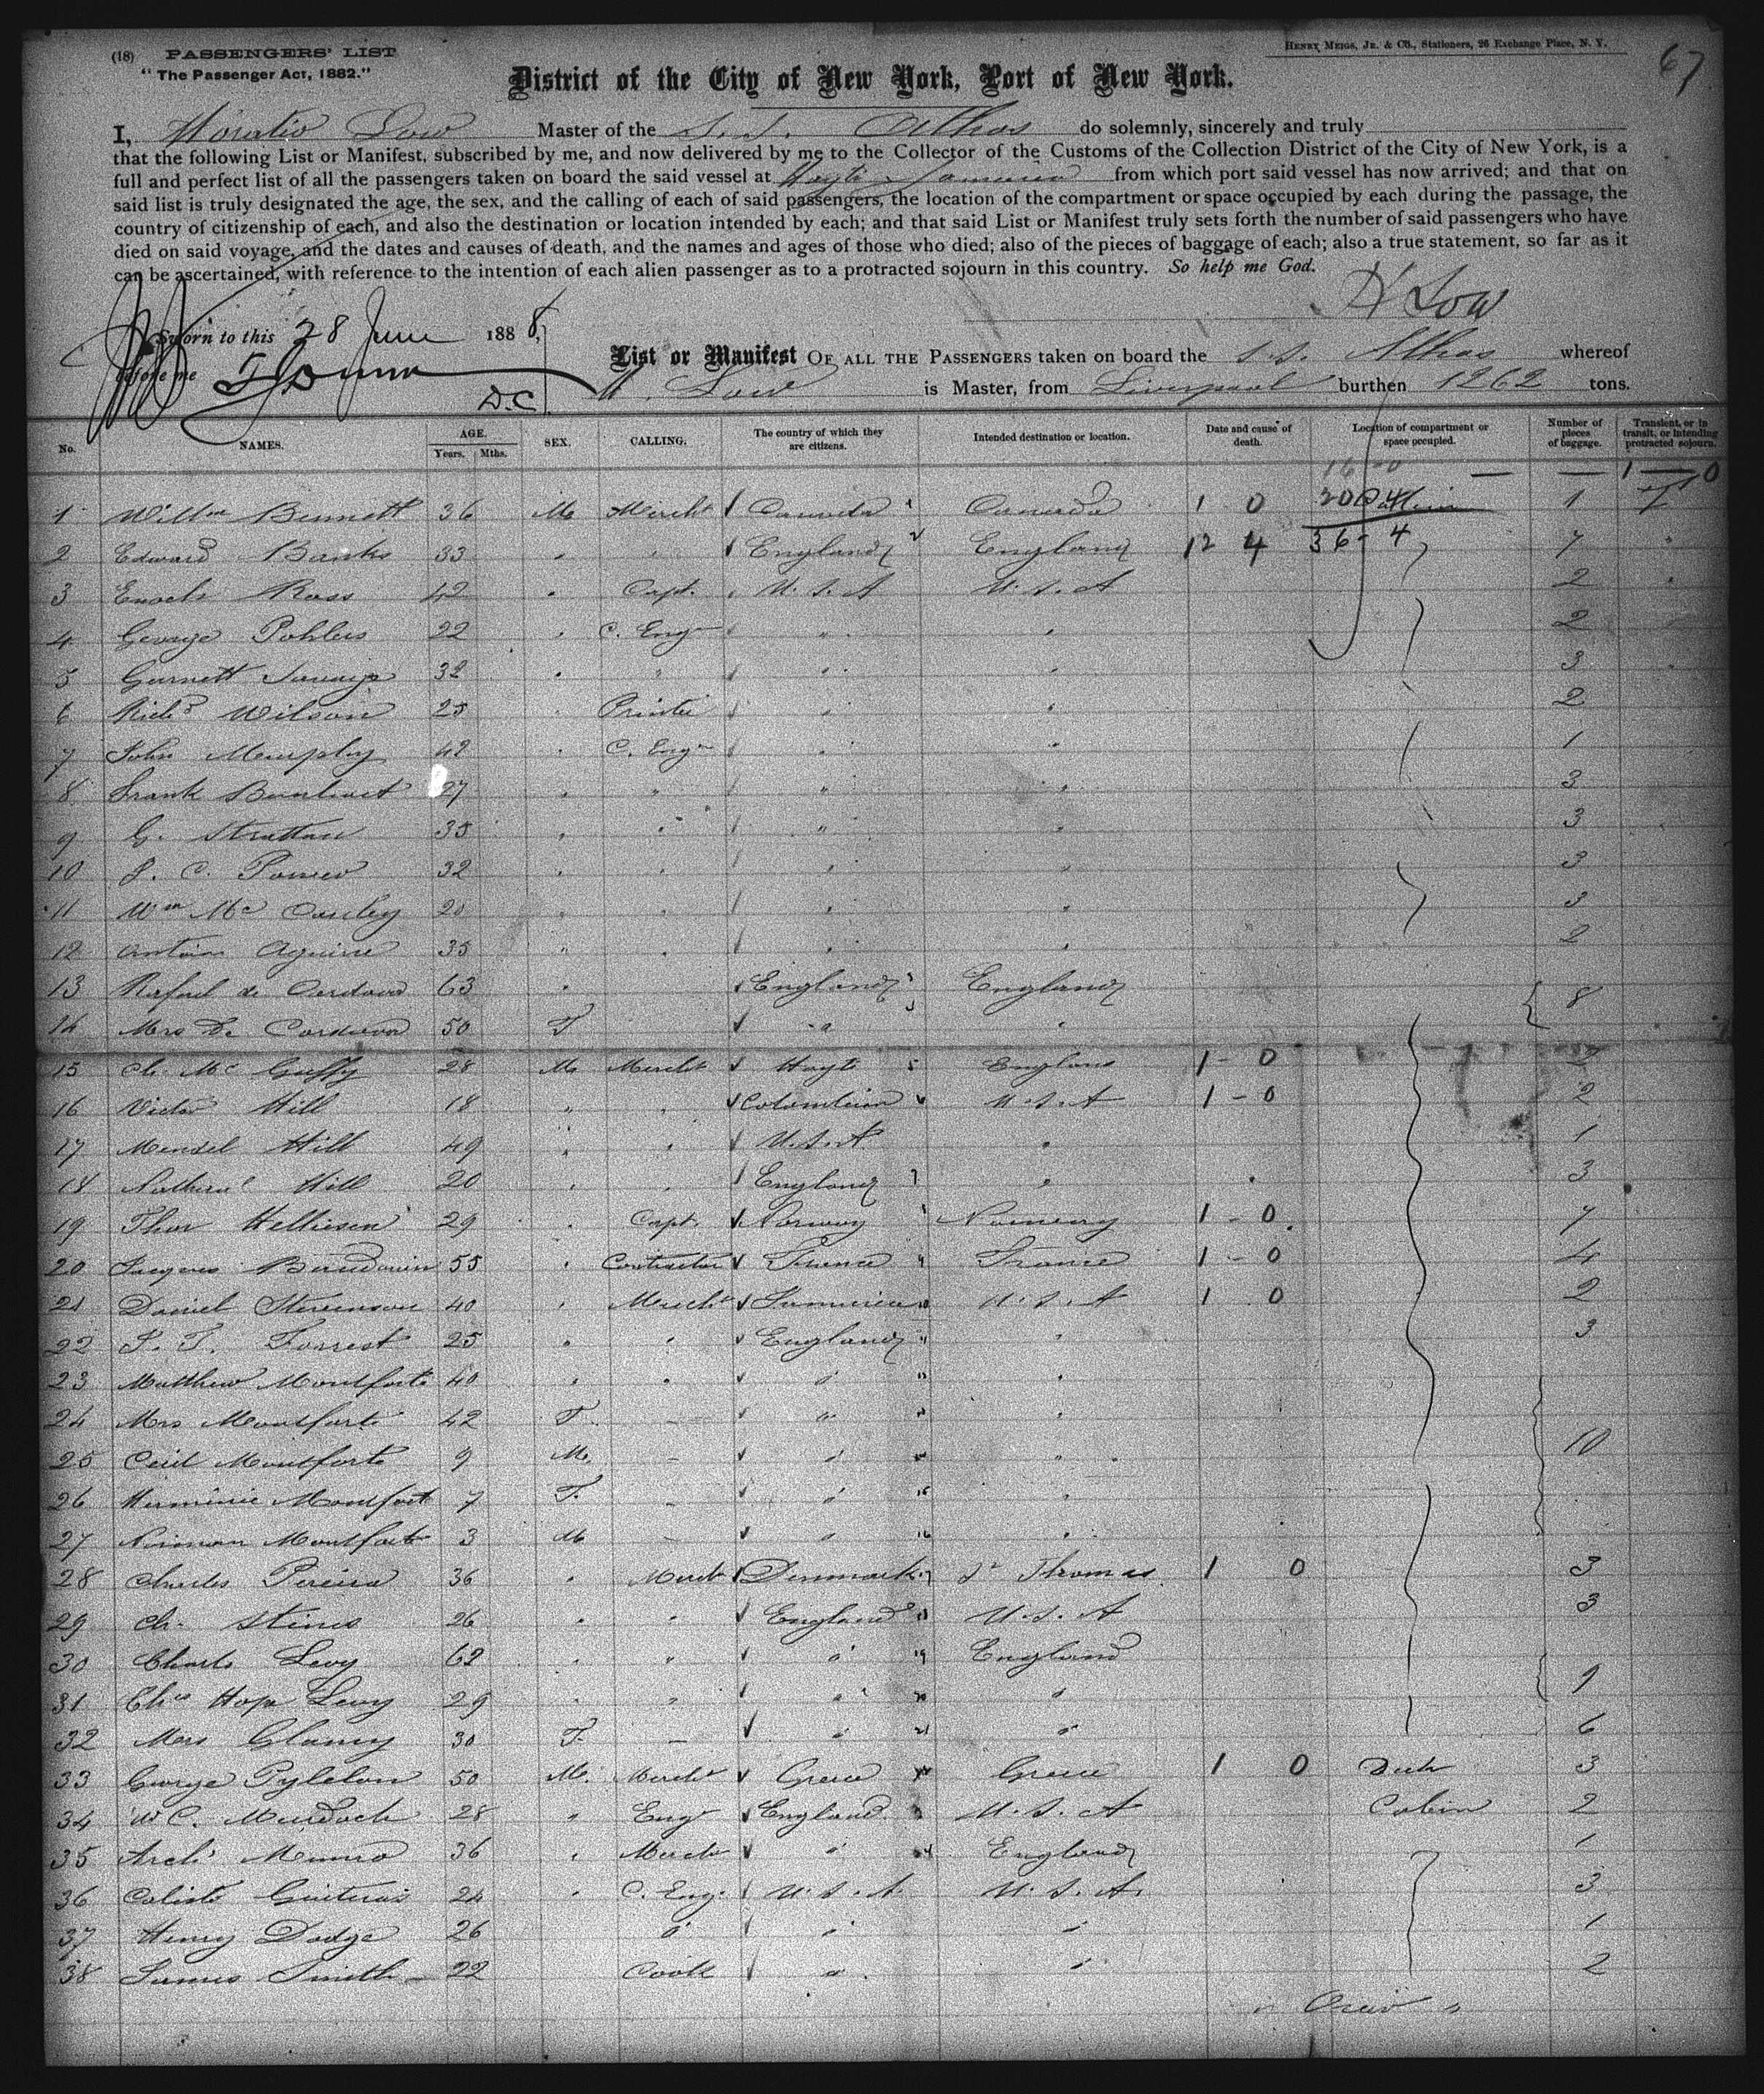 (18) PASSENGERS' LIST
HENRY MEIGS, JR. & CO., Stationers, 26 Exchange Place, N. Y.
67
"The Passenger Act, 1882."
District of the City of New York, Port of New York.
I, Horatio Low Master of the S.S. Athos do solemnly, sincerely and truly
that the following List or Manifest, subscribed by me, and now delivered by me to the Collector of the Customs of the Collection District of the City of New York, is a
full and perfect list of all the passengers taken on board the said vessel at Hayti Jamaica from which port said vessel has now arrived; and that on
said list is truly designated the age, the sex, and the calling of each of said passengers, the location of the compartment or space occupied by each during the passage, the
country of citizenship of each, and also the destination or location intended by each; and that said List or Manifest truly sets forth the number of said passengers who have
died on said voyage, and the dates and causes of death, and the names and ages of those who died; also of the pieces of baggage of each; also a true statement, so far as it
can be ascertained, with reference to the intention of each alien passenger as to a protracted sojourn in this country. So help me God.
H Low
Sworn to this 28 June 1888,
before me
D.C.
List or Manifest OF ALL THE PASSENGERS taken on board the S.S. Athos whereof
H. Low is Master, from Liverpool burthen 1262 tons.
No. NAMES. AGE. Years. Mths. SEX. CALLING. The country of which they are citizens. Intended destination or location. Date and cause of death. Location of compartment or space occupied. Number of pieces of baggage. Transient, or in transit, or intending protracted sojourn.
16-0 — — 1 — 0
1 Willm Bennett 36 M Mercht Canada Canada 1 0 20 1
2 Edward Banks 33 " " England England 12 4 36-4 7
3 Enoch Ross 42 " Capt. U.S.A U.S.A 2
4 George Pohlers 22 " C. Engr " " 2
5 Garnett 32 " " " " 3
6 Richd Wilson 25 " Printer " " 2
7 John 42 " C. Engr " " 1
8 Frank 27 " " " " 3
9 G. Stratton 35 " " " " 3
10 J. C. 32 " " " " 3
11 Wm Mc Cauley 20 " " " " 3
12 Antoin Aguirre 35 " " " " 2
13 Rafael de Cordova 63 " England England 8
14 Mrs De Cordova 50 F " "
15 Ch. Mc Guffy 28 M Mercht Hayti England 1-0 2
16 Victor Hill 18 " " Colombian U.S.A 1-0 2
17 Mensel Hill 49 " " U.S.A " 1
18 Hill 20 " " England " 3
19 Thor Helliesen 29 " Capt. Norway Norway 1-0 7
20 Jacques 55 " Contractor France France 1-0 4
21 Daniel Stevenson 40 " Mercht Jamaica U.S.A 1 0 2
22 S. T. Forrest 25 " " England " 3
23 Matthew Montforte 40 " " " "
24 Mrs Montforte 42 F. — " "
25 Cecil Montforte 9 M. — " " 10
26 Herminie Montfort 7 F. — " "
27 Norman Montforte 3 M — " "
28 Charles Pereira 36 " Mercht Denmark St Thomas 1 0 3
29 Ch. Stines 26 " " England U.S.A 3
30 Charls Levy 62 " " " England
31 Chas Hope Levy 29 " " " " 9
32 Mrs Clancy 30 F. — " " 6
33 George 50 M. Mercht Greece Greece 1 0 Deck 3
34 W C. Murdoch 28 " Engr England U.S.A Cabin 2
35 Archd Munro 36 " Mercht " England 1
36 Calisto 24 " C. Eng. U.S.A. U.S.A. 3
37 Henry Dodge 26 " " " 1
38 James Smith 22 Cook " " 2
" Over "